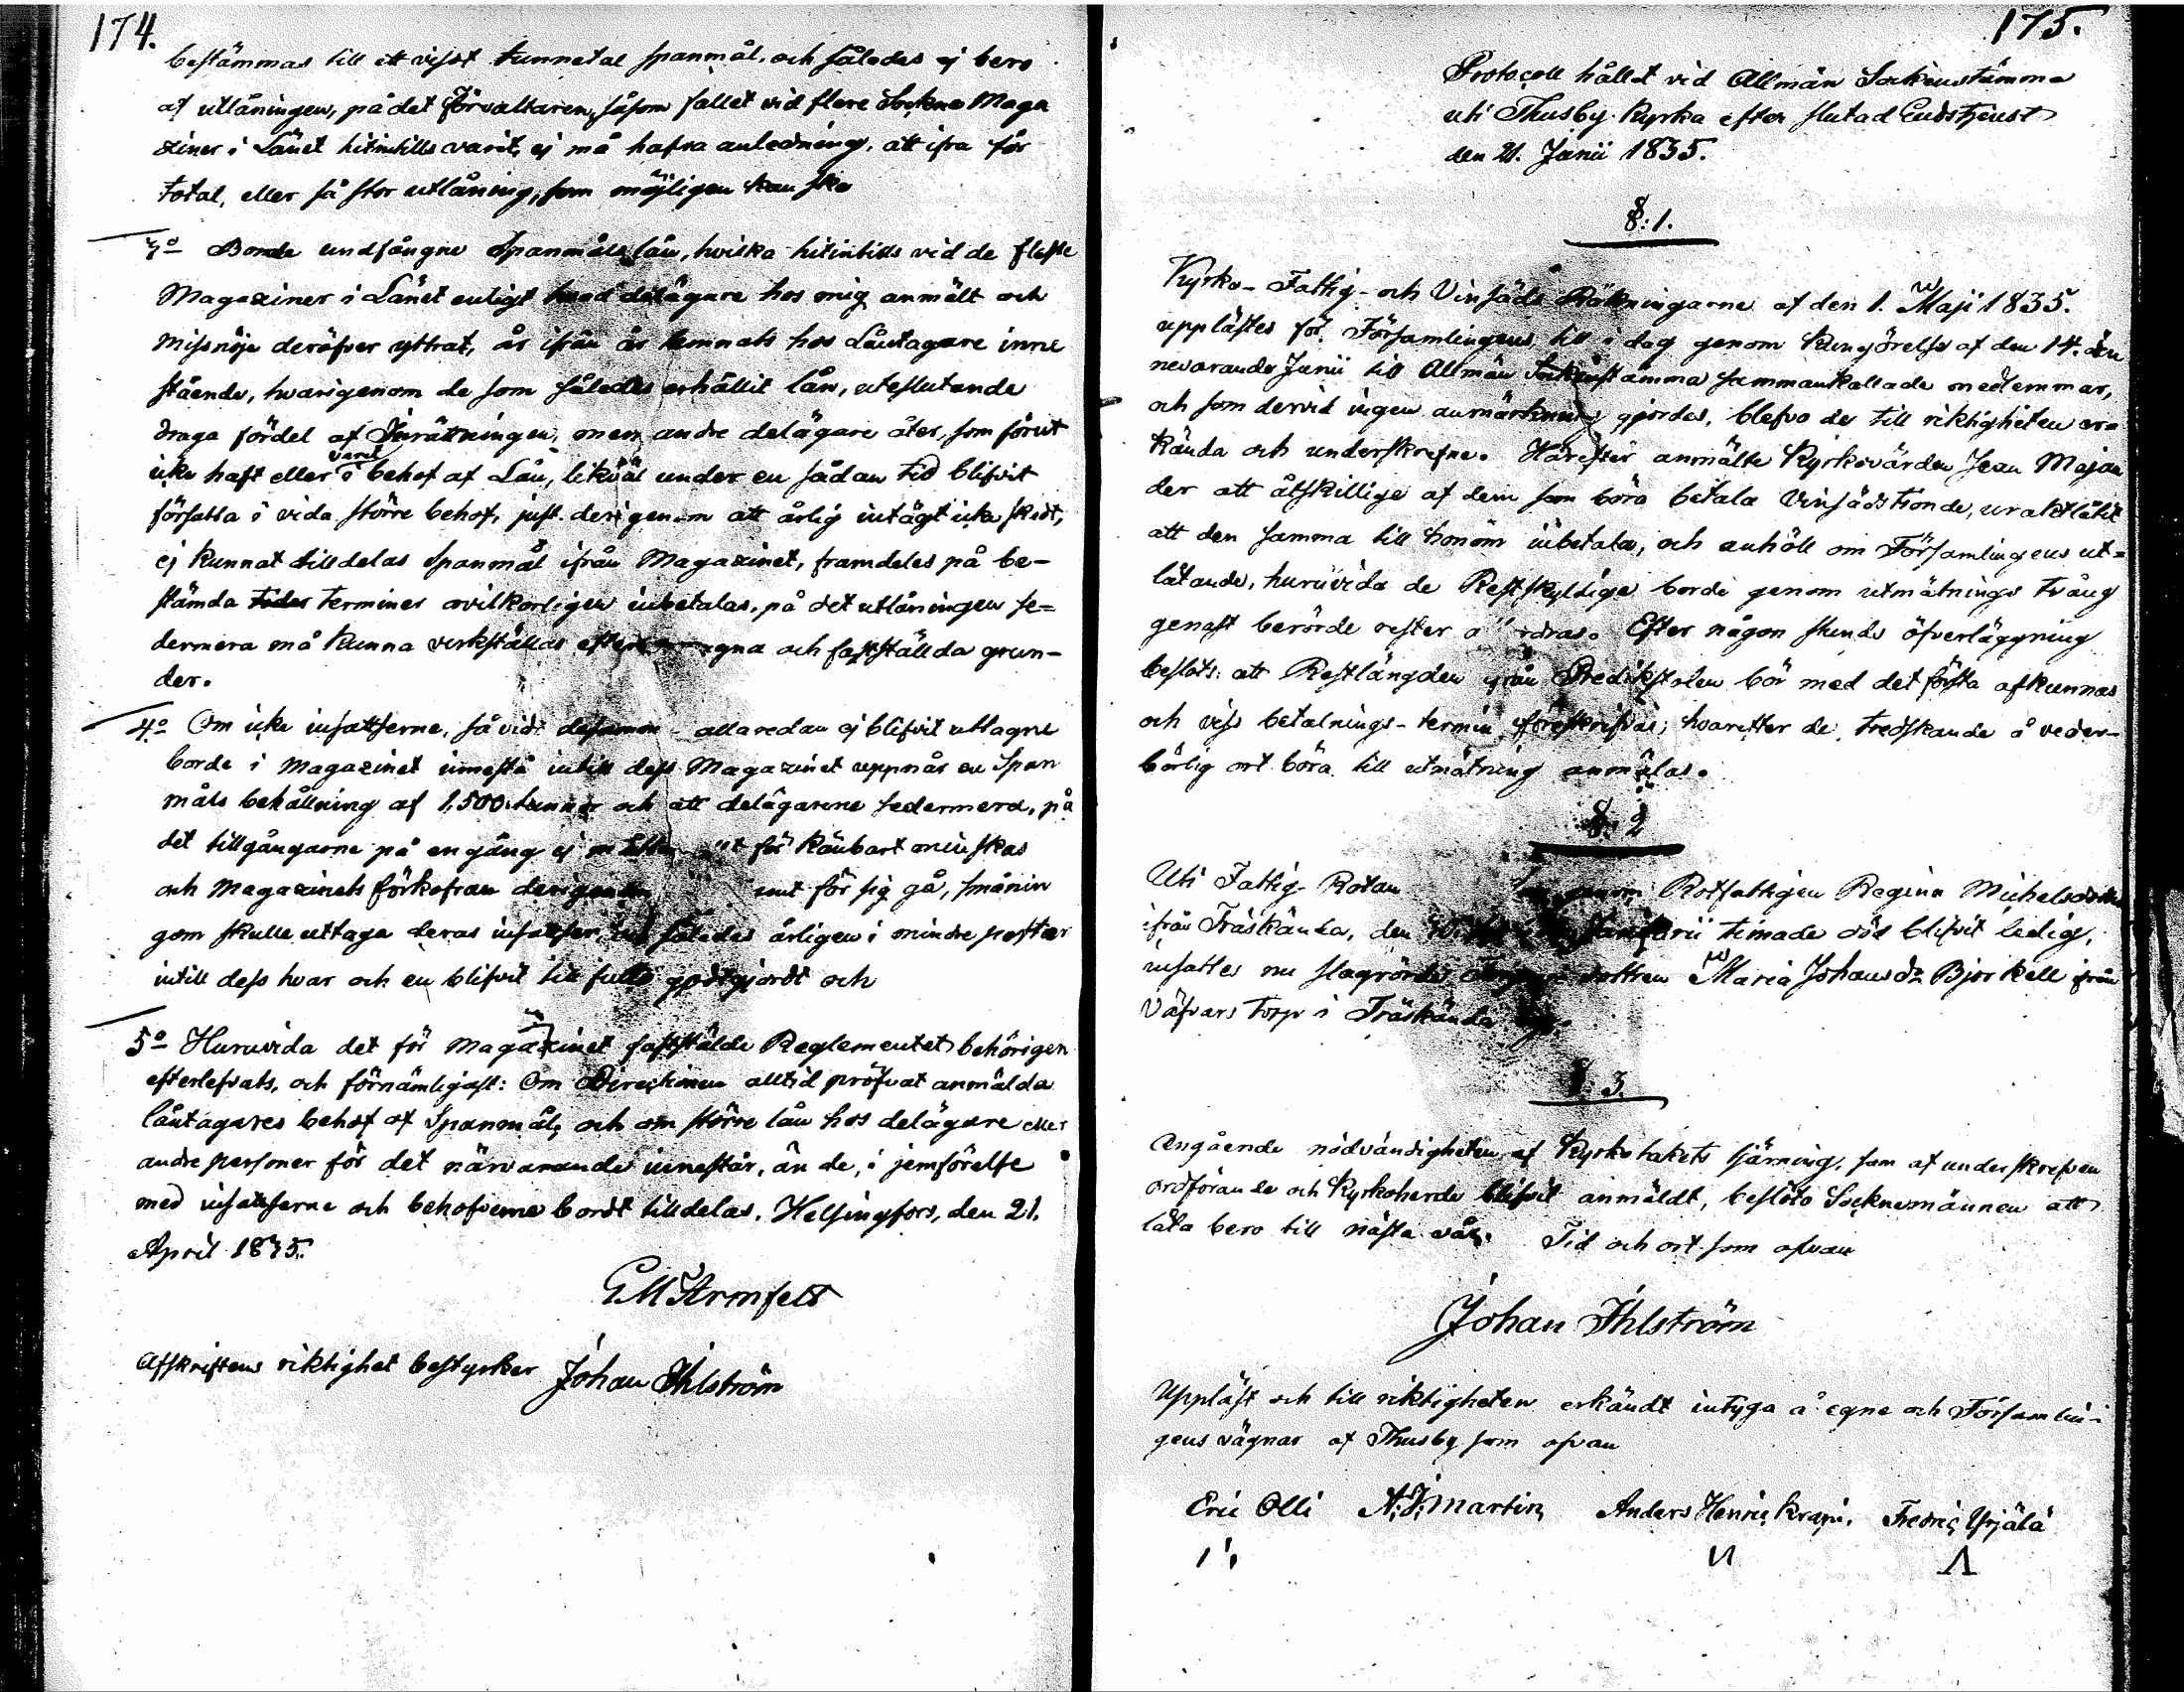 174.
bestämmas till ett visst tunnetal spanmål, och således ej bero
af utlåningen, på det Förvaltaren, såsom fallet vid flere Sockne Maga
ziner i Länet hitintills varit, ej må hafva anledning, att ifra för
total, eller så stor utlåning, som möjligen kan ske
3o Borde undfångne Spanmåls lån, hvilka hitintills vid de fleste
Magaziner i Länet enligt hvad delägare hos mig anmält och
missnöje deröfver yttrat, år ifrån år lemnats hos Låntagare inne
stående, hvarigenom de som således erhållit lån, uteslutande
draga fördel af Inrättningen, men andre delägare åter, som förut
icke haft eller varit i behof af Lån, likväl under en sådan tid blifvit
försatta i vida större behof, just derigenom att årlig intägt icke skedt,
ej kunnat tilldelas Spanmål ifrån Magazinet, framdeles på be-
stämda tider terminer ovilkorligen inbetalas, på det utlåningen se-
dermera må kunna verkställas efter egna och fastställda grun-
der.
4o Om icke insattserne, så vidt desamma allaredan ej blifvit uttagne
borde i Magazinet innestå intill dess Magazinet uppnår en Span
måls behållning af 1,500. tunnor och att delägarne sedermera, på
det tillgångarne på en gång ej måtte allt för känbart minskas
och Magazinets förkofran derigenom för sig gå, smånin
gom skulle uttaga deras insattser, och således årligen i mindre poster
intill dess hvar och en blifvit till fullo godtgjordt och
5o Huruvida det för Magazinet fastställde Reglementet behörigen
efterlefvats, och förnämligast: Om Directionen alltid pröfvat anmälda
låntagares behof af Spanmål, och om större lån hos delägare eller
andre personer för det närvarande innestår, än de, i jemförelse
med insattserne och behofvene bordt tilldelas. Helsingfors, den 21.
April 1835.
G M Armfelt
Afskriftens riktighet bestyrker Johan Ihlström
175.
Protocoll hållet vid Allmän Sockenstämma
uti Thusby Kyrka efter slutad Gudstjenst
den 21. Junii 1835.
§: 1.
Kyrko- Fattig- och Vinsäds Räkningarne af den 1. Maji 1835.
upplästes för Församlingens, till i dag genom Kungörelse af den 14. den
nevarande Junii till Allmän Sockenstämma sammankallade medlemmar,
och som dervid ingen anmärkning gjordes, blefvo de till riktigheten er=
kända och underskrefne. Härefter anmälte Kyrkovärden Jean Majan
der att åtskillige af dem som böra betala Vinsädstionde, uraktlåtit
att den samma till honom inbetala, och anhöll om Församlingens ut=
låtande, huruvida de Restskyldige borde genom utmätnings tvång
genast berörde rester Efter någon stunds öfverläggning
beslöts: att Restlängden ifrån Predikstolen bör med det första afkunnas
och viss betalnings-termin föreskrifvas; hvarefter de tredskande å veder-
börlig ort böra till utmätning anmälas.
§: 2
Uti Fattig Rotan genom Rotfattigen Regina Michelsdotter
ifrån Träskända, den timade död blifvit ledig,
insattes nu slagrörda dottren Maria Johansdr Björkell från
Väfvars torp i Träskända
§: 3.
Angående nödvändigheten af Kyrkotakets tjärning, som af underskrefven
ordförande och Kyrkoherde blifvit anmäldt, beslöto Socknemännen att
låta bero till nästa vår. Tid och ort som ofvan
Johan Ihlström
Uppläst och till riktigheten erkändt intyga å egne och Församlin-
gens vägnar af Thusby som ofvan
Eric Olli A. J. Martin Anders Henric Krapi. Fredric Yrjälä